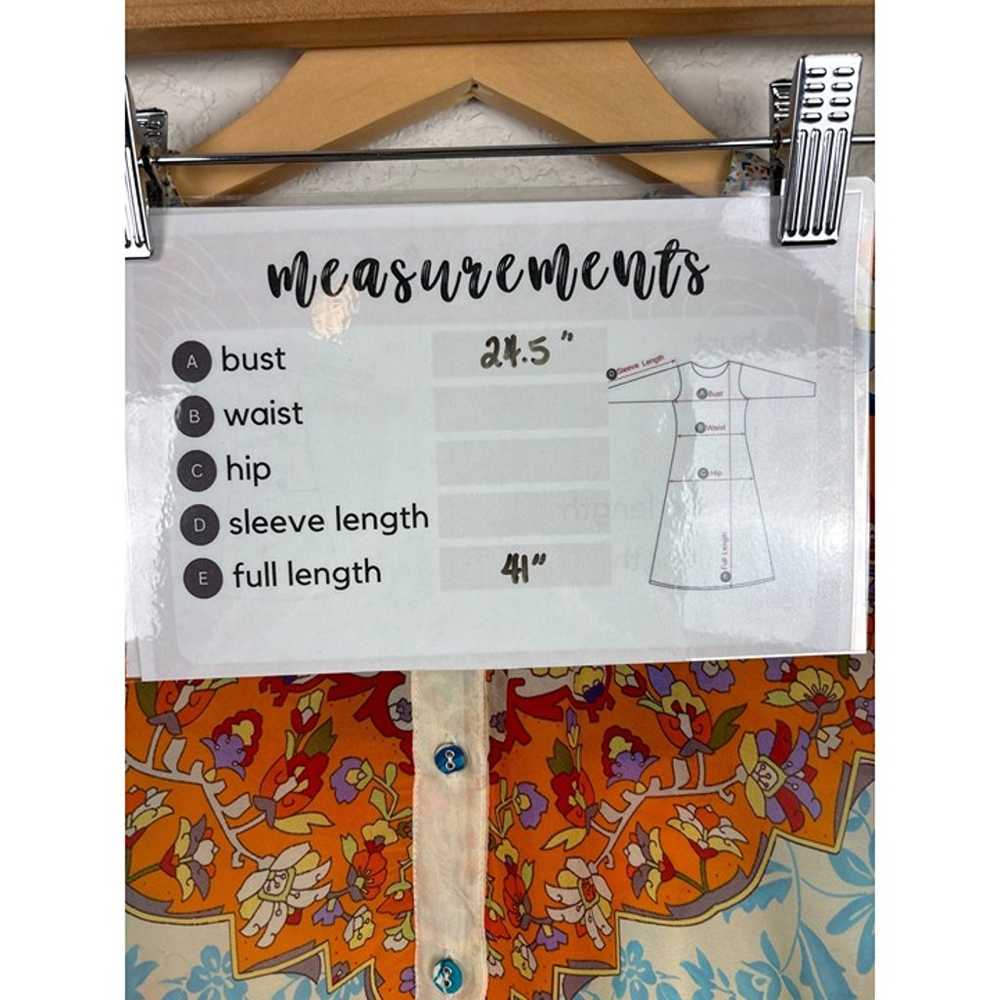 measurements
A bust 24.5"
B waist
C hip
D sleeve length
E full length 41"
D Sleeve Length
A Bust
B Waist
C Hip
Full Length
E